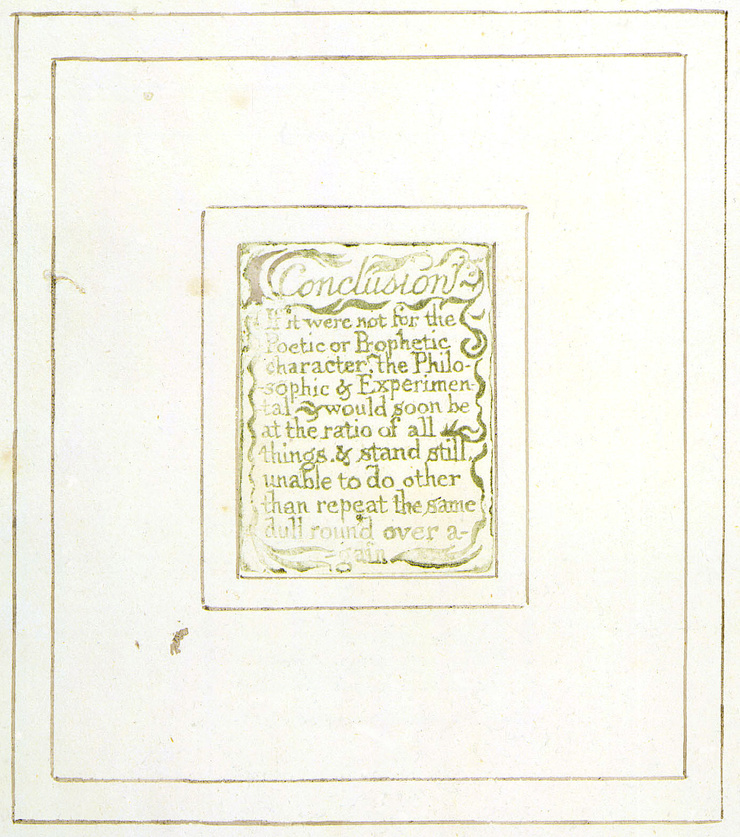 Conclusion
If it were not for the
Poetic or Prophetic
character, the Philo-
-sophic & Experimen-
-tal would soon be
at the ratio of all
things, & stand still,
unable to do other
than repeat the same
dull round over a-
gain